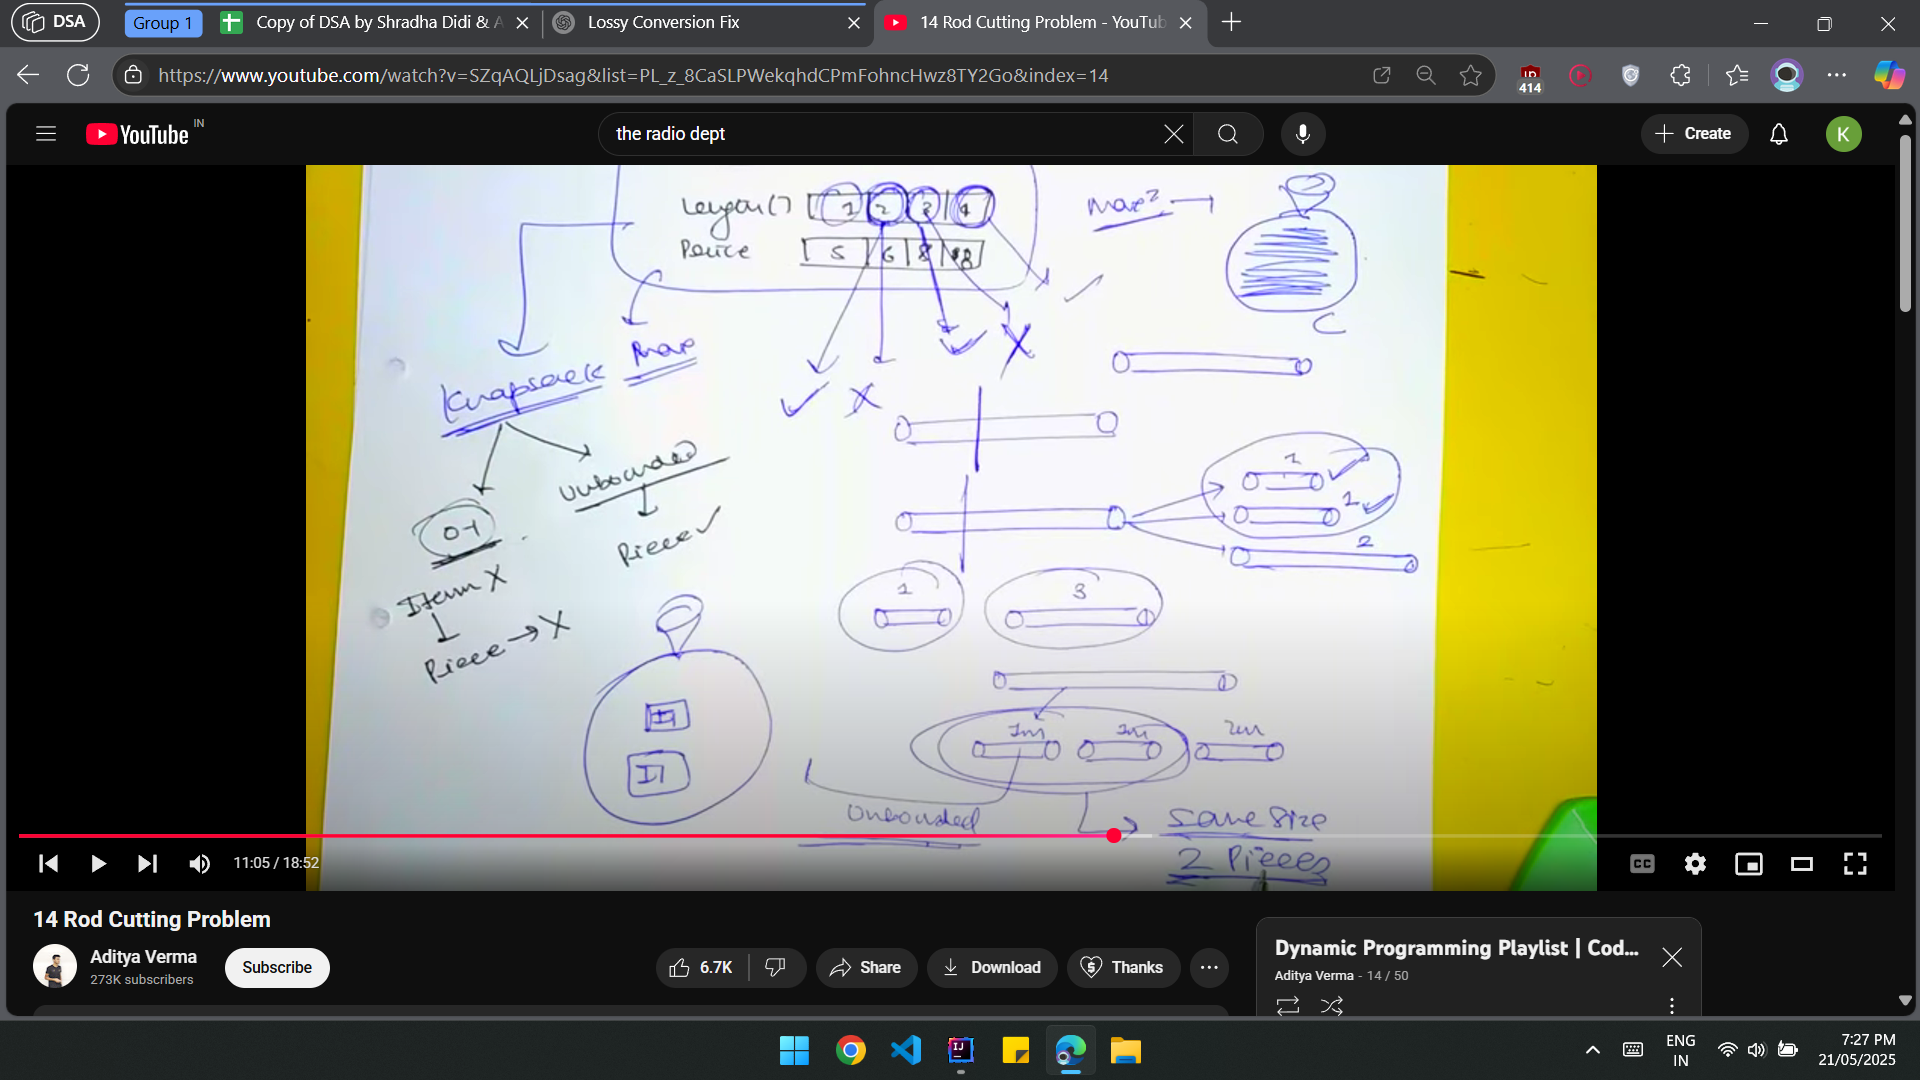 DSA
Group 1
Copy of DSA by Shradha Didi & A
Lossy Conversion Fix
14 Rod Cutting Problem - YouTub
https://www.youtube.com/watch?v=SZqAQLjDsag&list=PL_z_8CaSLPWekqhdCPmFohncHwz8TY2Go&index=14
414
YouTube IN
the radio dept
Create
K
Length[]
1 2 3 4
Price
5 6 8 8
C
Knapsack
Unbounded
0-1
Piece ✓
Item X
Piece → X
1
1
2
1
3
I1
I1
1m 1m 2m
Unbounded
Same Size
2 Pieces
11:05 / 18:52
CC
14 Rod Cutting Problem
Aditya Verma
273K subscribers
Subscribe
6.7K
Share
Download
Thanks
Dynamic Programming Playlist | Cod...
Aditya Verma - 14 / 50
ENG
IN
7:27 PM
21/05/2025